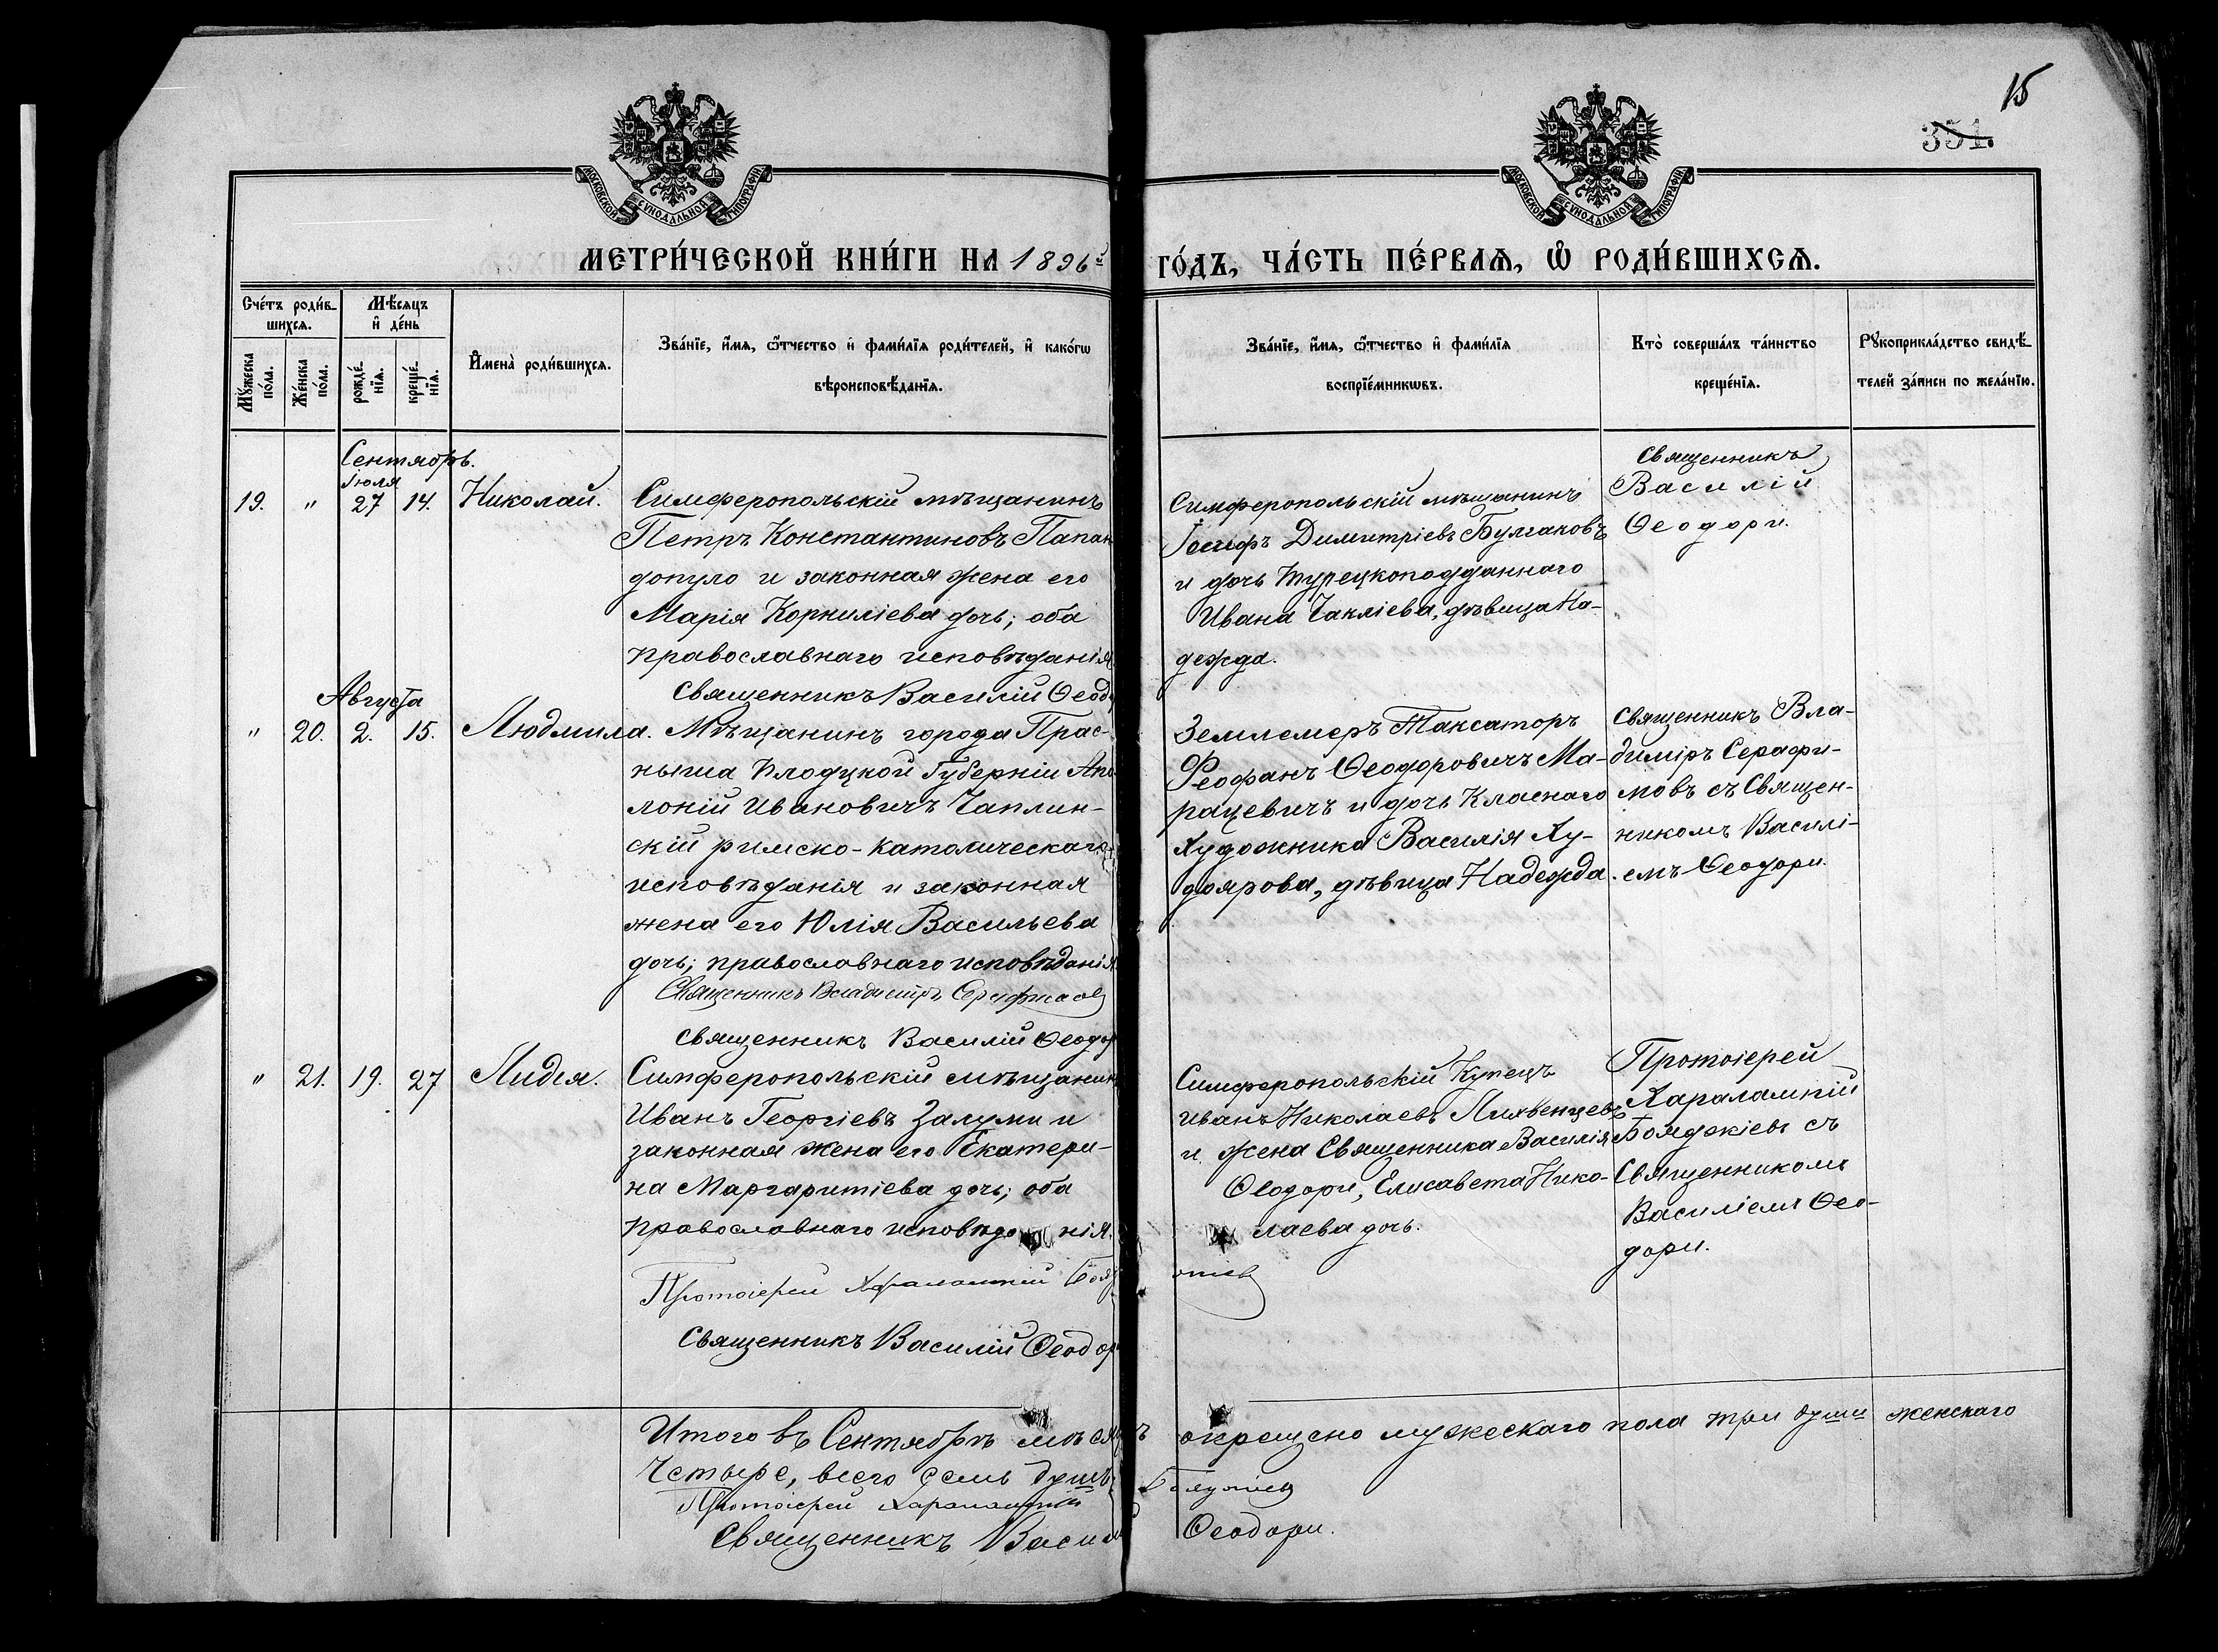 15
351.
МОСКОВСКОЙ СѴНОДАЛЬНОЙ ТИПОГРАФІИ
МОСКОВСКОЙ СѴНОДАЛЬНОЙ ТИПОГРАФІИ
МЕТРИ́ЧЕСКОЙ КНИ́ГИ НА 1896й ГО́ДЪ, ЧА́СТЬ ПЕ́РВАѦ, Ѽ РОДИ́ВШИХСѦ.
Сче́тъ роди́в-
шихсѧ.
Мѣ́сѧцъ
и҆ де́нь
Мꙋ́жеска
по́ла.
Же́нска
по́ла.
рожде́-
нїѧ.
креще́-
нїѧ.
И҆мена̀ роди́вшихсѧ.
Зва́нїе, и҆́мѧ, ѻ҆́тчество и҆ фами́лїѧ роди́телей, и҆ како́гѡ
вѣроисповѣ́данїѧ.
Зва́нїе, и҆́мѧ, ѻ҆́тчество и҆ фами́лїѧ
воспрїе́мникѡвъ.
Кто̀ соверша́лъ та́инство
креще́нїѧ.
Рꙋкоприкла́дство свидѣ́-
телей за́писи по жела́нїю.
Сентябрь.
Іюля
19. " 27 14. Николай.
Симферопольскій мѣщанинъ
Петръ Константиновъ Папан
допуло и законная жена его
Марія Корниліева дочь; оба
православнаго исповѣданія
Священникъ Василій Ѳеодо
Симферопольскій мѣщанинъ
Іосифъ Димитріевъ Булгаковъ
и дочь Турецкоподданнаго
Ивана Чакліева, дѣвица На-
дежда.
Священникъ
Василій
Ѳеодори.
Августа
" 20. 2. 15. Людмила.
Мѣщанинъ города Прас-
ныша Плоцкой Губерніи Апо
лоній Ивановичъ Чаплин-
скій римско-католическаго
исповѣданія и законная
жена его Юлія Васильева
дочь; православнаго исповѣданія
Священникъ Владиміръ Серафимовъ
Священникъ Василій Ѳеодор
Землемеръ Таксаторъ
Феофанъ Ѳеодоровичъ Ма-
рацевичъ и дочь Класнаго
Художника Василія Ху-
доярова, дѣвица Надежда.
Священникъ Вла-
диміръ Серафи-
мовъ съ Священ-
никомъ Василі-
емъ Ѳеодори.
" 21. 19. 27 Лидія.
Симферопольскій мѣщанин
Иванъ Георгіевъ Залуми и
законная жена его Екатери-
на Маргаритіева дочь; оба
православнаго исповѣданія.
Протоіерей Харалампій Бояд
жіевъ
Священникъ Василій Ѳеодор
Симферопольскій Купецъ
Иванъ Николаевъ Лиявенцевъ
и жена Священника Василія
Ѳеодори, Елисавета Нико-
лаева дочь.
Протоіерей
Харалампій
Бояджіевъ съ
Священникомъ
Василіемъ Ѳео-
дори.
Итого въ Сентябрѣ мѣсяцѣ окрещено мужескаго пола три души женскаго
четыре, всего семь душъ.
Протоіерей Харалампій Бояджіевъ
Священникъ Василій Ѳеодори.